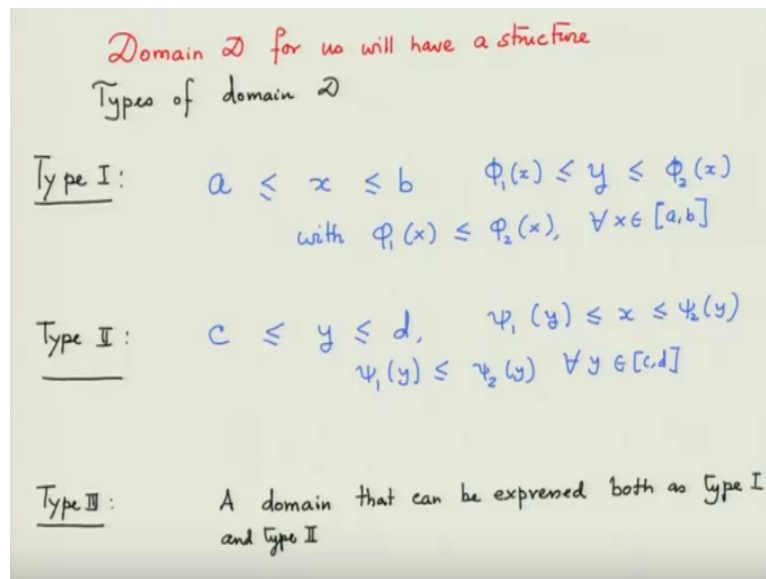 Domain D for us will have a structure
Types of domain D
Type I: a ≤ x ≤ b ϕ₁(x) ≤ y ≤ ϕ₂(x)
with φ₁(x) ≤ φ₂(x), ∀ x ∈ [a,b]
Type II: c ≤ y ≤ d, ψ₁(y) ≤ x ≤ ψ₂(y)
ψ₁(y) ≤ ψ₂(y) ∀ y ∈ [c,d]
Type III: A domain that can be expressed both as Type I
and Type II